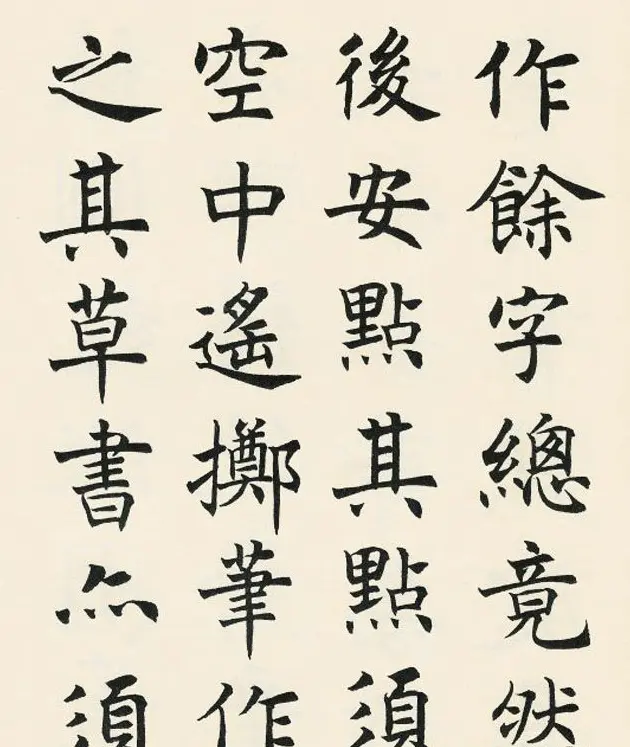 作餘字總竟然
後安點其點須
空中遙擲筆作
之其草書亦須